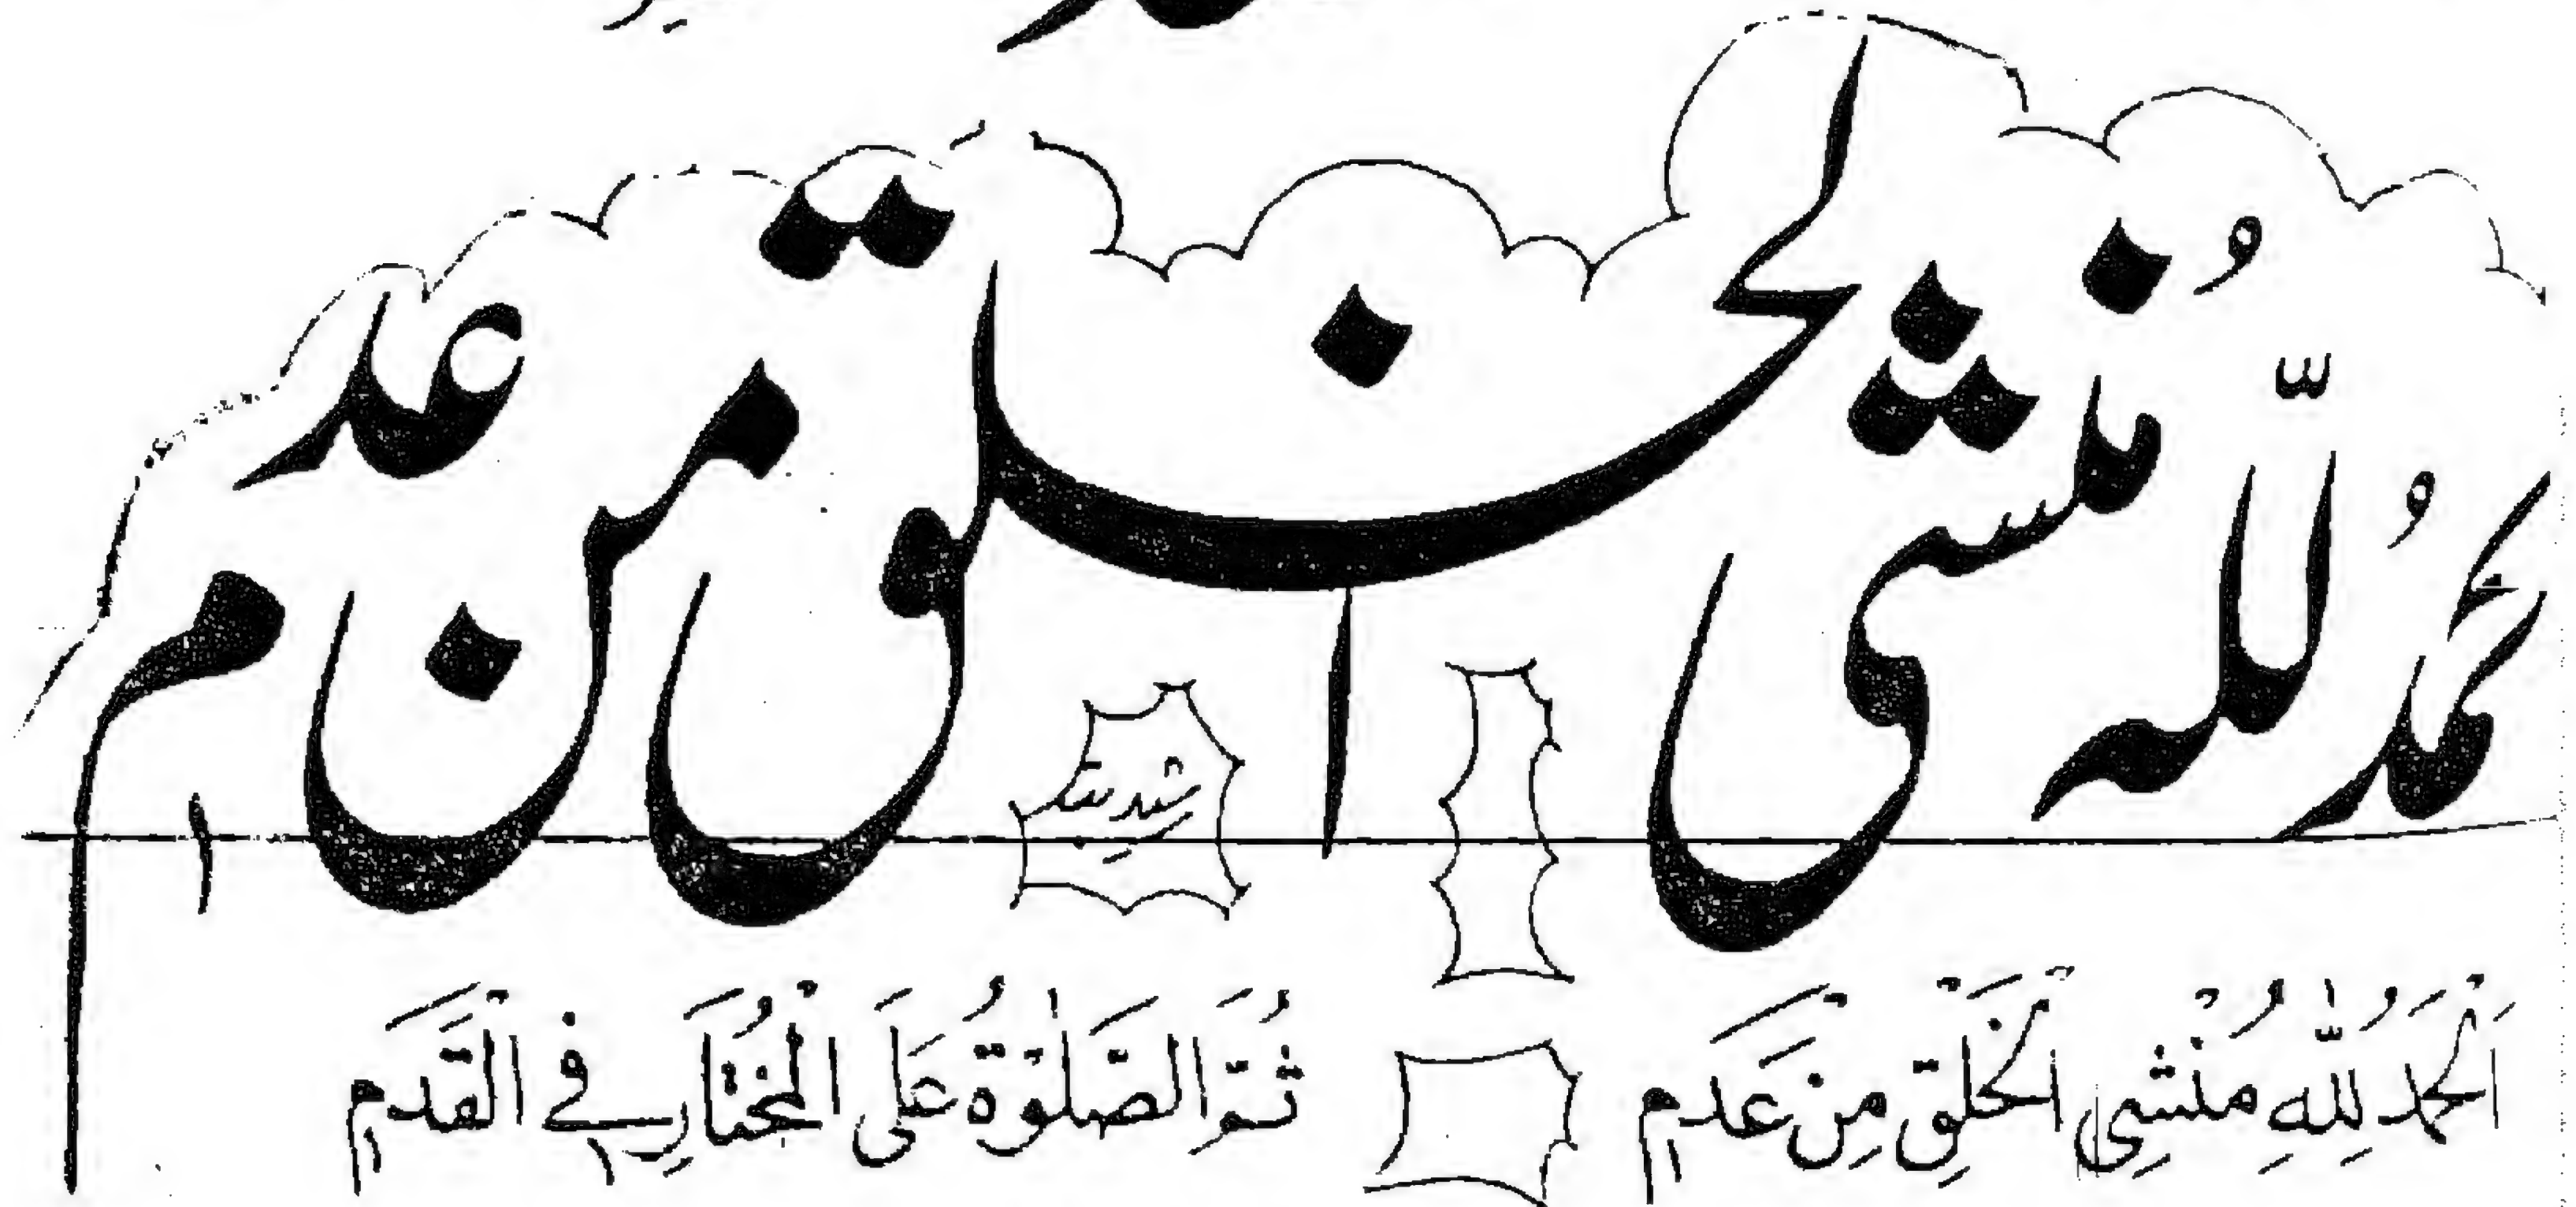 الحمد لله منشی الخلق من عدم
اَلْحَمْدُ لِلّٰهِ مُنْشِی الْخَلْقِ مِنْ عَدَمٍ ثُمَّ الصَّلٰوةُ عَلَی الْمُخْتَارِ فِی الْقِدَمِ